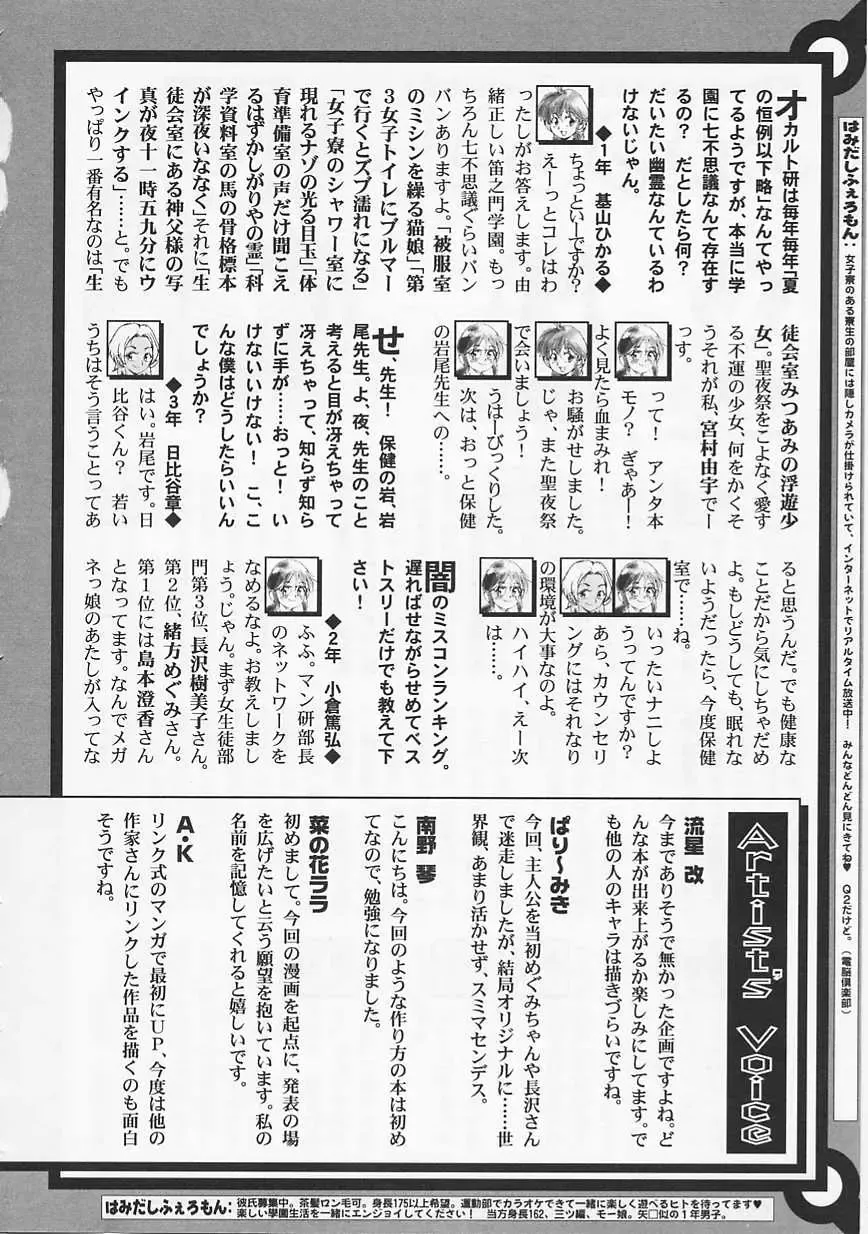 はみだしふぇろもん：女子寮のある寮生の部屋には隠しカメラが仕掛けられていて、インターネットでリアルタイム放送中！　みんなどんどん見にきてね♥　Ｑ２だけど。（電脳倶楽部）
オカルト研は毎年毎年「夏
の恒例以下略」なんてやっ
てるようですが、本当に学
園に七不思議なんて存在す
るの？　だとしたら何？
だいたい幽霊なんているわ
けないじゃん。
◆１年　基山ひかる◆
ちょっといーですか？
えーっとコレはわ
ったしがお答えします。由
緒正しい笛之門学園。もっ
ちろん七不思議ぐらいバン
バンありますよ。「被服室
のミシンを繰る猫娘」「第
３女子トイレにブルマー
で行くとズブ濡れになる」
「女子寮のシャワー室に
現れるナゾの光る目玉」「体
育準備室の声だけ聞こえ
るはずかしがりやの霊」「科
学資料室の馬の骨格標本
が深夜いななく」それに「生
徒会室にある神父様の写
真が夜十一時五九分にウ
インクする」……と。でも
やっぱり一番有名なのは「生
徒会室みつあみの浮遊少
女」。聖夜祭をこよなく愛す
る不運の少女、何をかくそ
うそれが私、宮村由宇でー
っす。
って！　アンタ本
モノ？　ぎゃあー！
よく見たら血まみれ！
お騒がせしました。
じゃ、また聖夜祭
で会いましょう！
うはーびっくりした。
次は、おっと保健
の岩尾先生への……。
せ、先生！　保健の岩、岩
尾先生。よ、夜、先生のこと
考えると目が冴えちゃって
冴えちゃって、知らず知ら
ずに手が……おっと！　い
けないいけない！　こ、こ
んな僕はどうしたらいいん
でしょうか？
◆３年　日比谷章◆
はい。岩尾です。日
比谷くん？　若い
うちはそう言うことってあ
ると思うんだ。でも健康な
ことだから気にしちゃだめ
よ。もしどうしても、眠れな
いようだったら、今度保健
室で……ね。
いったいナニしよ
うってんですか？
あら、カウンセリ
ングにはそれなり
の環境が大事なのよ。
ハイハイ、えー次
は……。
闇のミスコンランキング。
遅ればせながらせめてベス
トスリーだけでも教えて下
さい！
◆２年　小倉篤弘◆
ふふ。マン研部長
のネットワークを
なめるなよ。お教えしまし
ょう。じゃん。まず女生徒部
門第３位、長沢樹美子さん。
第２位、緒方めぐみさん。
第１位には島本澄香さん
となってます。なんでメガ
ネっ娘のあたしが入ってな
Artist's Voice
流星 改
今までありそうで無かった企画ですよね。ど
んな本が出来上がるか楽しみにしてます。で
も他の人のキャラは描きづらいですね。
ぱり～みき
今回、主人公を当初めぐみちゃんや長沢さん
で迷走しましたが、結局オリジナルに……世
界観、あまり活かせず、スミマセンデス。
南野 琴
こんにちは。今回のような作り方の本は初め
てなので、勉強になりました。
菜の花ララ
初めまして。今回の漫画を起点に、発表の場
を広げたいと云う願望を抱いています。私の
名前を記憶してくれると嬉しいです。
Ａ・Ｋ
リンク式のマンガで最初にＵＰ、今度は他の
作家さんにリンクした作品を描くのも面白
そうですね。
はみだしふぇろもん：彼氏募集中。茶髪ロン毛可。身長175以上希望。運動部でカラオケできて一緒に楽しく遊べるヒトを待ってます♥
楽しい學園生活を一緒にエンジョイしてください！　当方身長162、三ツ編、モー娘。矢□似の１年男子。